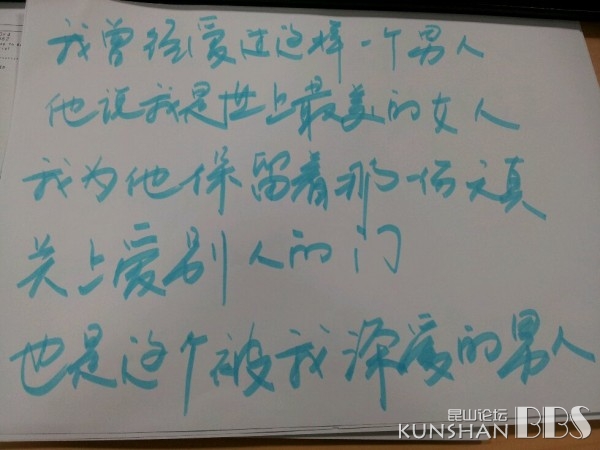 我曾经爱过这样一个男人
他说我是世上最美的女人
我为他保留着那一份天真
关上爱别人的门
也是这个被我深爱的男人
昆山论坛
KUNSHAN BBS